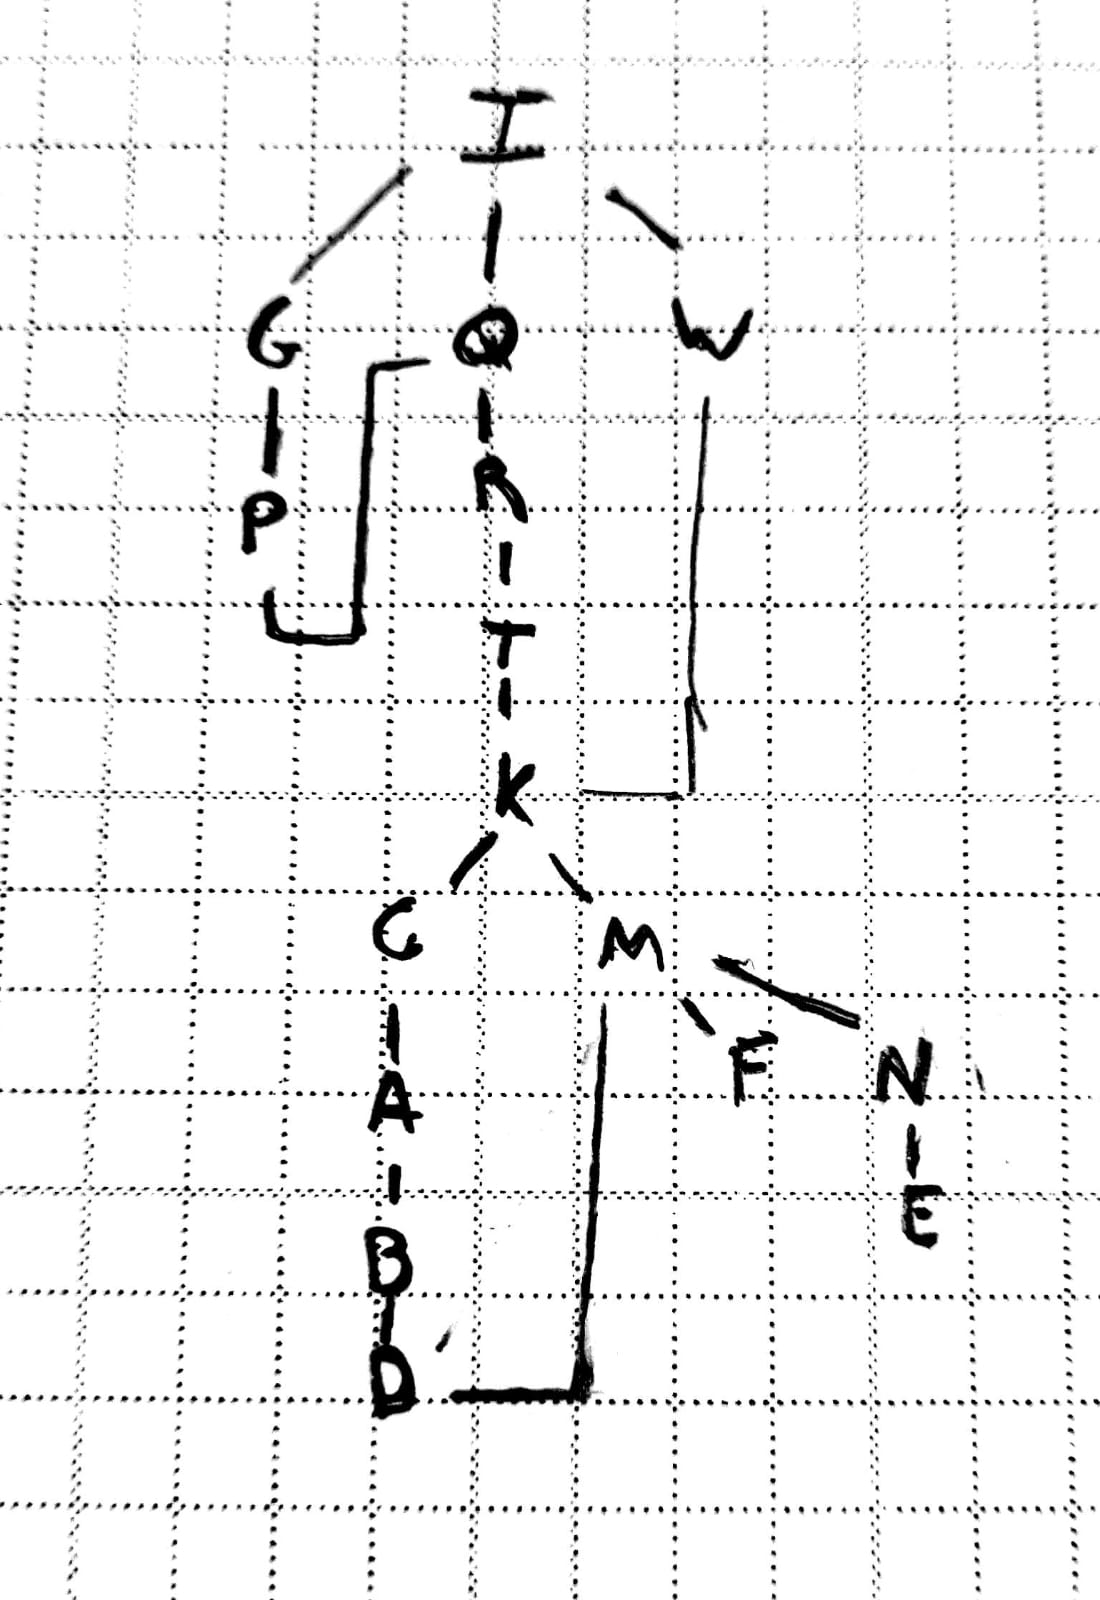 I
G Q W
P R
T
K
C M
F N
A
E
B
D